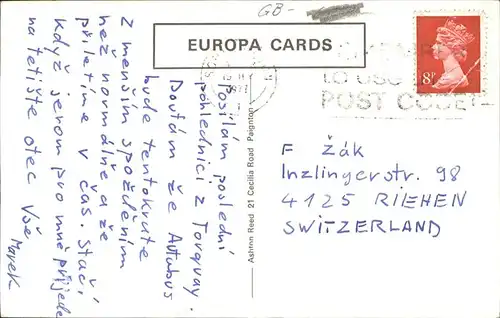 GB-
EUROPA CARDS
8P
TO USE
POST CODE
Posílám poslední
pohlednici z Torquay.
Doufám že Autobus
bude tentokráte
z menším spožděním
než normálně a že
přiletíme v čas. Stačí
když jenom pro mně přijede
na letiště otec Vše
Marek
Ashton Reed 21 Cecilia Road Paignton
F Žák
Inzlingerstr. 98
4125 RIEHEN
SWITZERLAND